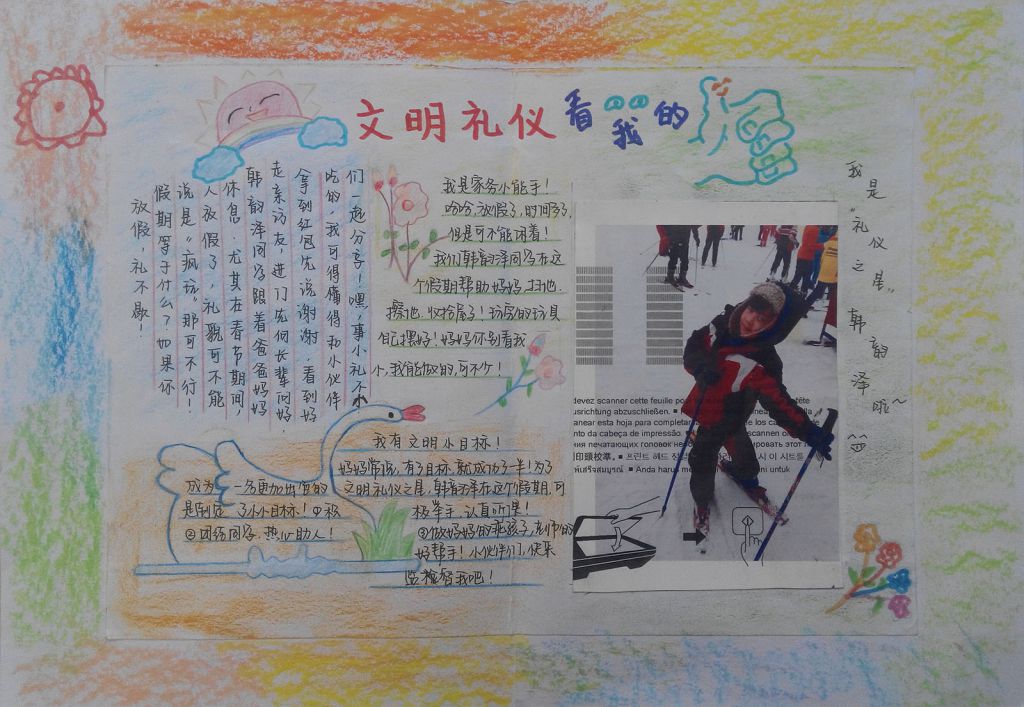 文明礼仪看我的
放假,礼不歇!
假期等于什么?如果你
说是“疯玩”那可不行!
人放假了,礼貌可不能
休息.尤其在春节期间,
韩韵泽同学跟着爸爸妈妈
走亲访友,进门先向长辈问好.
拿到红包先说谢谢.看到好
吃的,我可得懂得和小伙伴
们一起分享!嘿,事小礼不小
我是家务小能手!
哈哈,放假了,时间多了,
但是可不能闲着!
我们韩韵泽同学在这
个假期帮助妈妈,扫地.
擦地.收拾屋子!玩完的玩具
自己摆好!妈妈你别看我
小,我能做的,可不少!
我有文明小目标!
妈妈常说,有了目标,就成功了一半!为了
成为一名更加出色的
文明礼仪之星,韩韵泽在这个假期,可
是制定了小小目标!①积
极举手,认真听课!
②团结同学.热心助人!
③做妈妈的乖孩子,老师的
好帮手!小伙伴们,快来
监督我吧!
devez scanner cette feuille pou
tête
usrichtung abzuschließen. ■
anear esta hoja para completar
los ca
nto da cabeça de impressão.
scannen o
ния печатающих головок необ
ировать этот
印頭校準。 ■ 프린트 헤드 정렬
시 이 시트를
Anda harus me
ni untuk
我是“礼仪之星”韩韵泽啦~